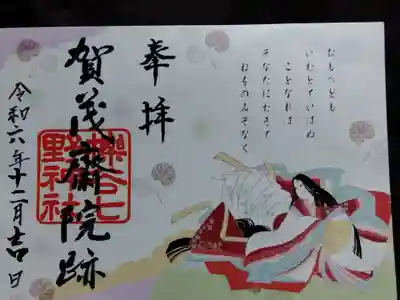 奉拝
賀茂斎院跡
櫟谷七
野神社
令和六年十二月吉日
おもへども
いむとていはぬ
ことなれば
そなたにむきて
ねをのみぞなく